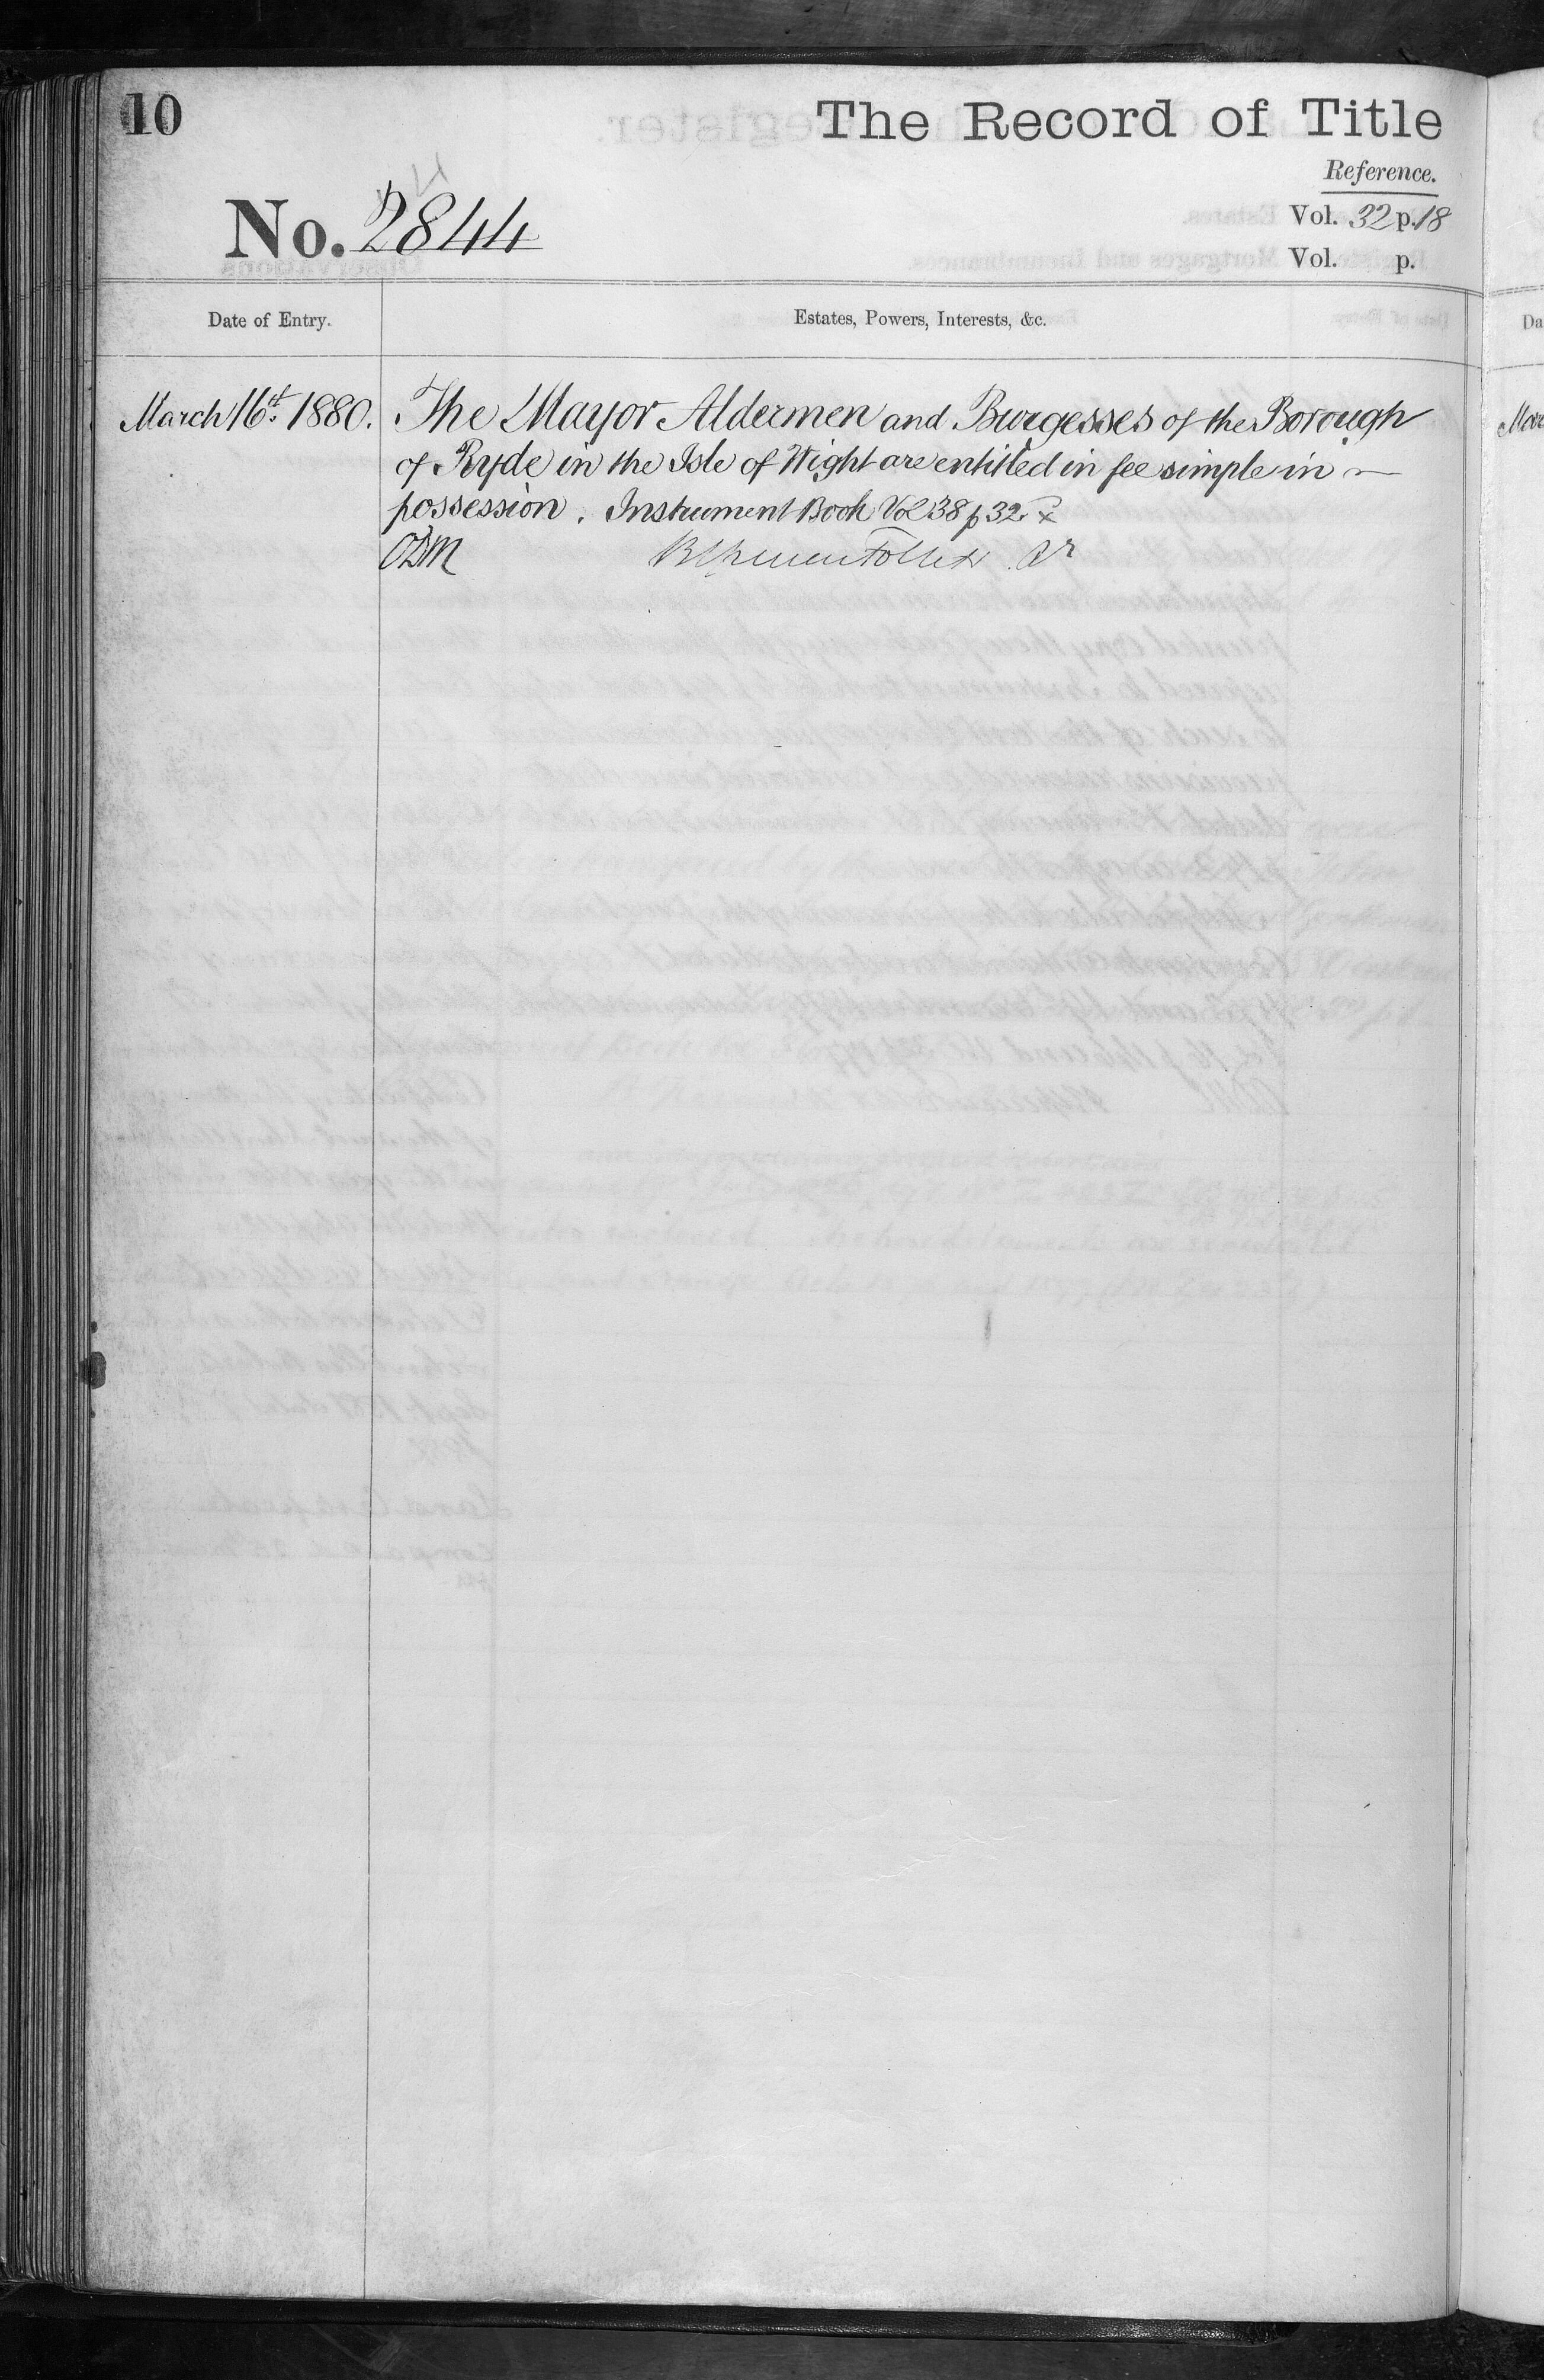 10
The Record of Title
Reference.
No. 2844
Vol. 32 p. 18
Vol. p.
Date of Entry.
Estates, Powers, Interests, &c.
March 16th 1880.
The Mayor Aldermen and Burgesses of the Borough
of Ryde in the Isle of Wight are entitled in fee simple in
possession. Instrument Book Vol 38 p 32